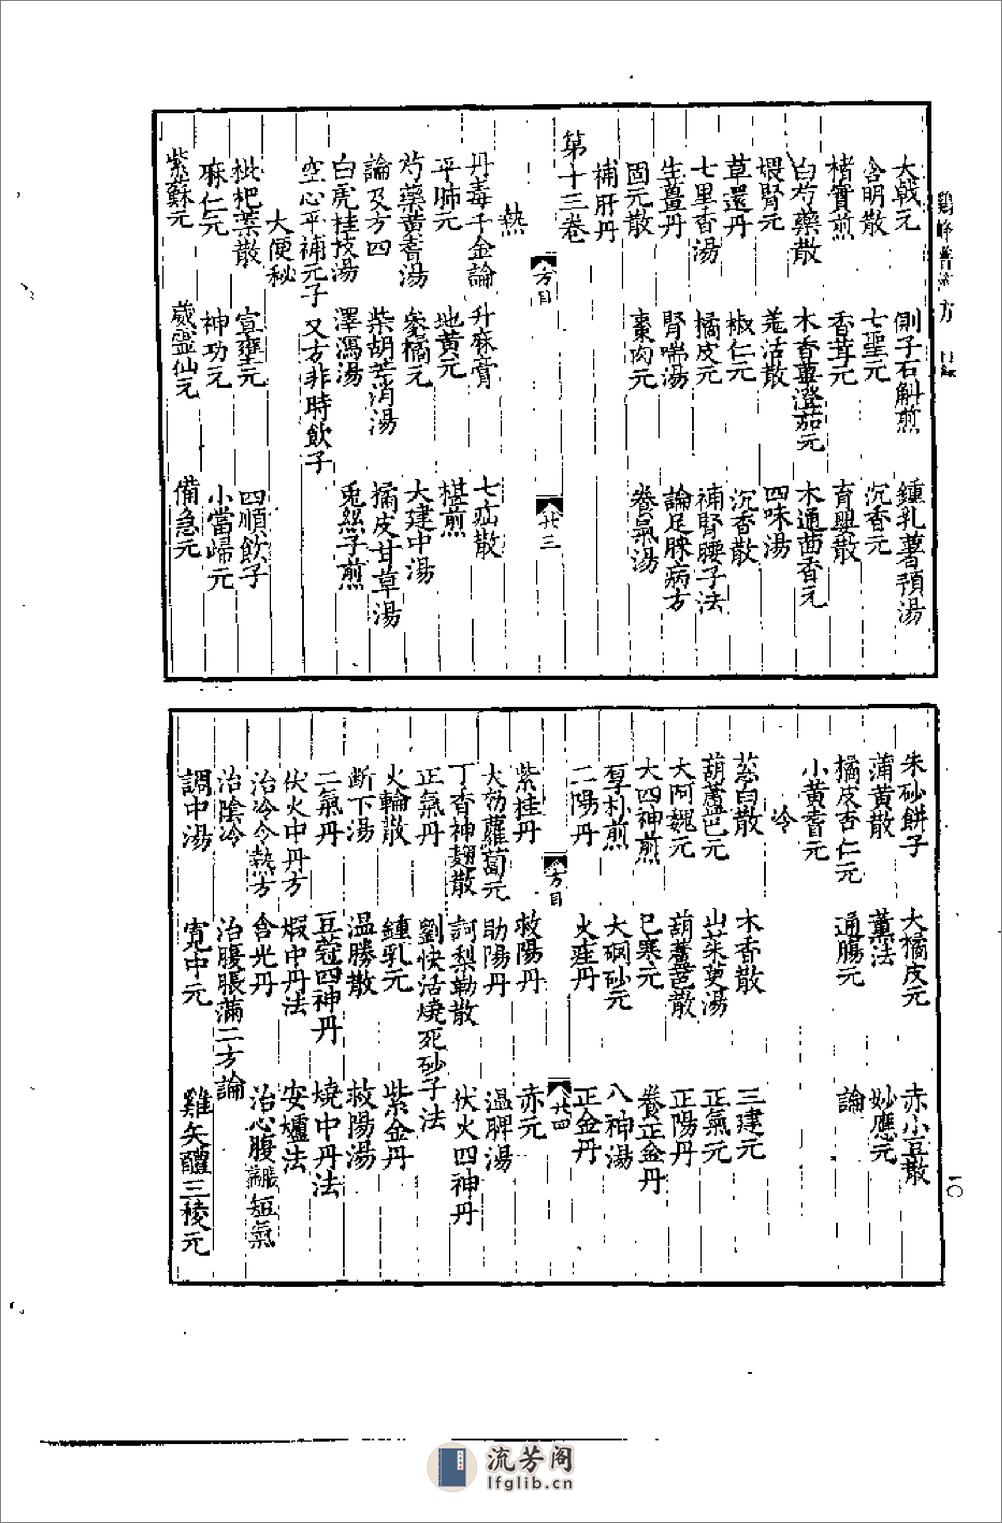 鷄峰普濟方 目錄
大戟元 側子石斛煎 鍾乳薯預湯
含明散 七聖元 沉香元
楮實煎 香茸元 育嬰散
白芍藥散 木香蓽澄茄元 木通茴香元
煨腎元 羗活散 四味湯
草還丹 椒仁元 沉香散
七里香湯 橘皮元 補腎腰子法
生薑丹 腎喘湯 論足脉病方
固元散 棗肉元 養氣湯
補肝丹
第十三卷
方目 廿三
熱
丹毒千金論 升麻膏 七疝散
平肺元 地黃元 椹煎
芍藥黃耆湯 麥橘元 大建中湯
論及方四 柴胡芒消湯 橘皮甘草湯
白虎桂枝湯 澤瀉湯 兎絲子煎
空心平補元子 又方非時飲子
大便秘
枇杷葉散 宣壅元 四順飲子
麻仁元 神功元 小當歸元
紫蘇元 葳靈仙元 備急元
朱砂餅子 大橘皮元 赤小豆散
蒲黃散 薰法 妙應元
橘皮杏仁元 通腸元 論
小黃耆元
冷
葱白散 木香散 三建元
葫蘆芭元 山茱萸湯 正氣元
大阿魏元 葫蘆芭散 正陽丹
大四神煎 已寒元 養正金丹
厚朴煎 大硇砂元 八神湯
二陽丹 火疰丹 正金丹
方目 廿四
紫桂丹 救陽丹 赤元
大勑蘿蔔元 助陽丹 温脾湯
丁香神麯散 訶梨勒散 伏火四神丹
正氣丹 劉快活燒死砂子法
火輪散 鍾乳元 紫金丹
斷下湯 温勝散 救陽湯
二氣丹 豆蔻四神丹 燒中丹法
伏火中丹方 煆中丹法 安爐法
治冷冷熱方 含光丹 治心腹脹滿短氣
治陰冷 治腹脹滿二方論
調中湯 寬中元 雞矢醴三稜元
一〇
流芳阁
lfglib.cn